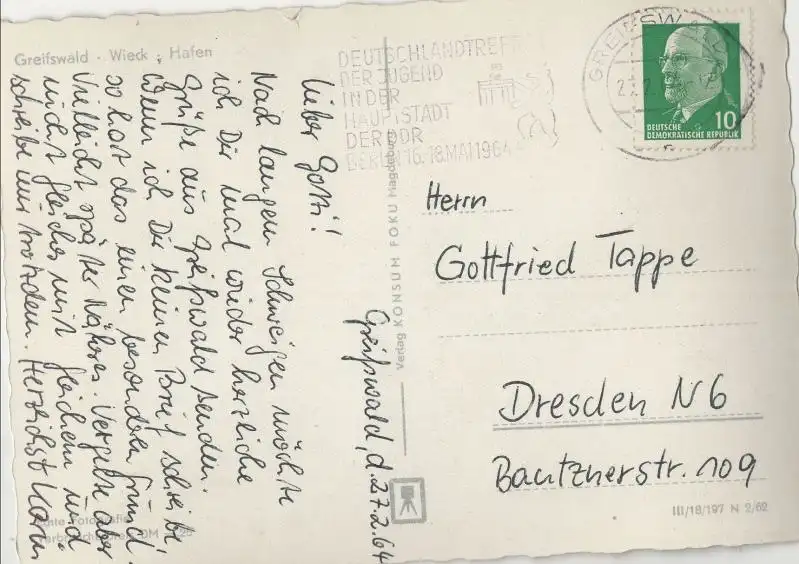 Greifswald - Wieck , Hafen
Greifswald, d. 27.2.64
Lieber Gotti!
Nach langem Schweigen möchte
ich Dir mal wieder herzliche
Grüße aus Greifswald senden.
Wenn ich Dir keinen Brief schreibe,
so hat das einen besonderen Grund.
Vielleicht später Näheres. Vergelte aber
nicht Gleiches mit Gleichem und
schreibe mir trotzdem. Herzlichst
Echte Fotografie
Verlag KONSUM FOKU Magdeburg
DEUTSCHLANDTREFFEN
DER JUGEND
IN DER
HAUPTSTADT
DER DDR
BERLIN 16.-18.MAI 1964
GREIFSWALD
10
DEUTSCHE
DEMOKRATISCHE REPUBLIK
Herrn
Gottfried Tappe
Dresden N6
Bautznerstr. 109
III/18/197 N 2/62